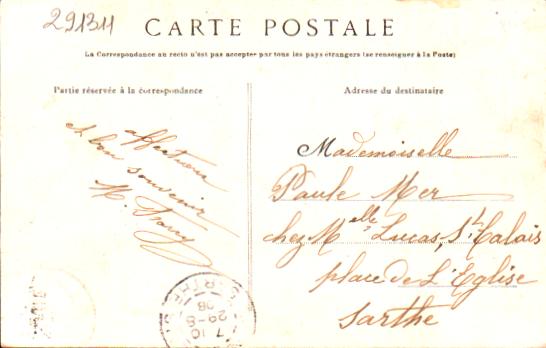 291311
CARTE POSTALE
La Correspondance au recto n'est pas acceptée par tous les pays étrangers (se renseigner à la Poste)
Partie réservée à la correspondance
Adresse du destinataire
affectueux
et bon souvenir
M.
Mademoiselle
Paule Mer
chez Melle Lucas, St Calais
place de L'Eglise
Sarthe
7 10
29-8
08